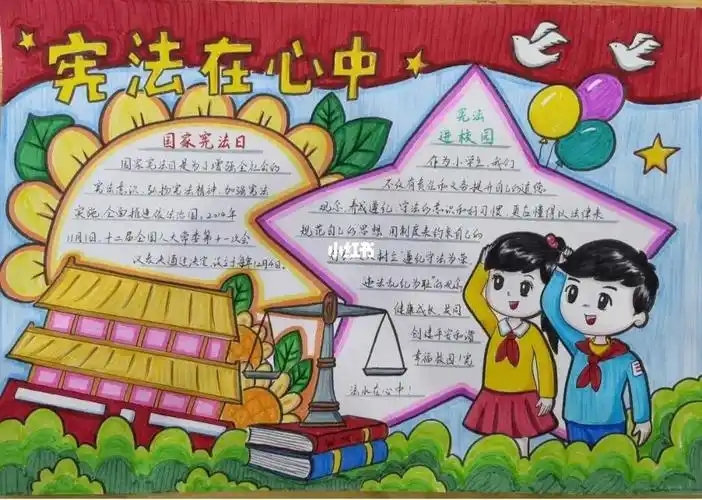 宪法在心中
国家宪法日
国家宪法日是为了增强全社会的
宪法意识、弘扬宪法精神、加强宪法
实施、全面推进依法治国，2014年
11月1日，十二届全国人大常委第十一次会
议表决通过决定，议立每年12月4日。
宪法
进校园
作为小学生，我们
不仅有责任和义务提升自己的道德
观念，养成遵纪、守法的意识和好习惯，更应懂得以法律来
规范自己的思想，用制度来约束自己的
树立“遵纪守法为荣
违法乱纪为耻”的观念
健康成长，共同
创建平安和谐
幸福校园！宪
法永在心中！
小红书